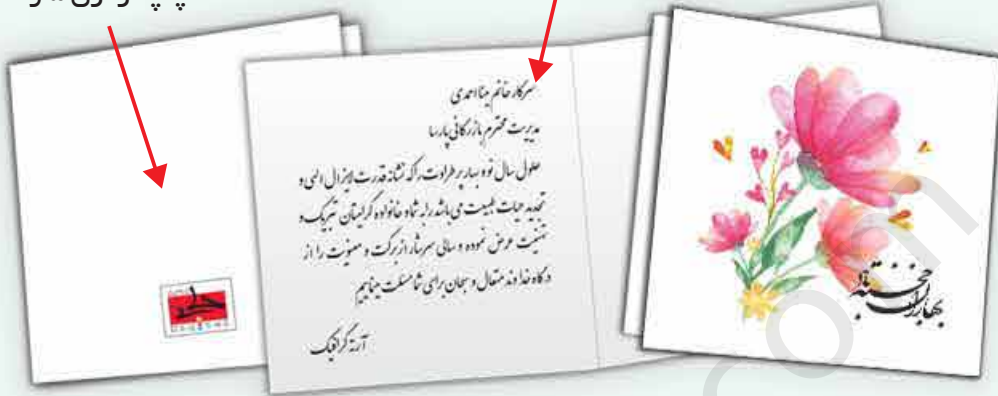 سرکار خانم مینا احمدی
مدیریت محترم بازرگانی پارسا
حلول سال نو و بهار پر طراوت را که نشانه قدرت لایزال الهی و
تجدید حیات طبیعت می باشد را به شما و خانواده گرامیتان تبریک و
تهنیت عرض نموده و سالی سرشار از برکت و معنویت را از
درگاه خداوند متعال و سبحان برای شما مسئلت مینماییم
گرافیک
بهارتان خجسته باد
com